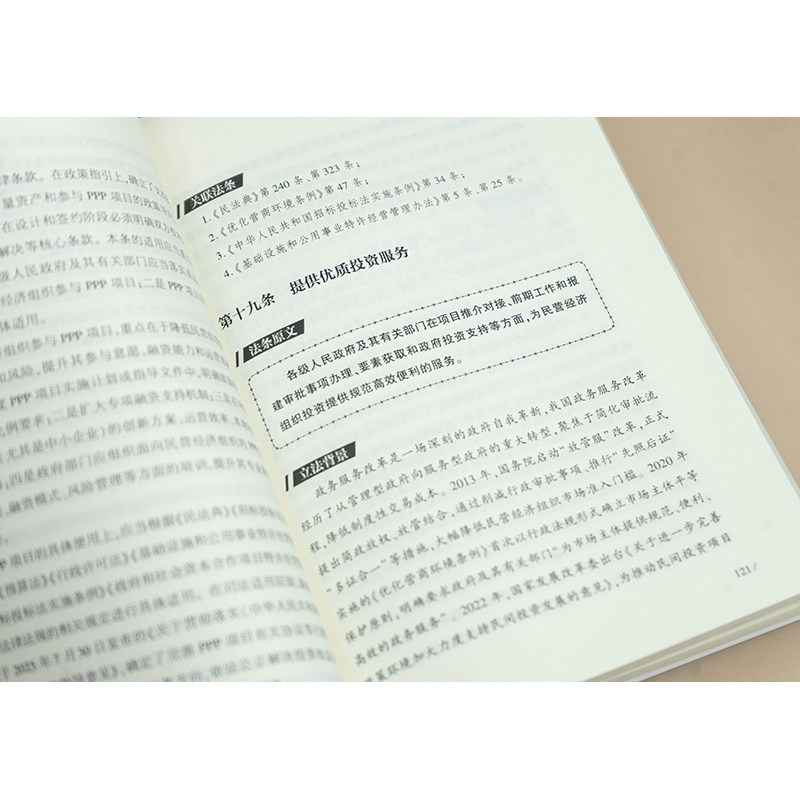 律条款。在政策指引上，确定了
量资产和参与 PPP 项目的政策
在设计和签约阶段必须明确双方权
解决等核心条款。本条的适用应当
级人民政府及其有关部门应当落实
经济组织参与 PPP 项目；二是 PPP 项
体适用。
组织参与 PPP 项目，重点在于降低民营
和风险，提升其参与意愿、融资能力和运营
度 PPP 项目实施计划或指导文件中，明确
例要求；二是扩大专项融资支持机制；三是
（尤其是中小企业）的创新方案、运营效率、
；四是政府部门应组织面向民营经济组织的
融资模式、风险管理等方面的培训，提升其专
PPP 项目的具体使用上，应当根据《民法典》《招标投
《预算法》《行政许可法》《基础设施和公用事业特许经
标投标法实施条例》《政府和社会资本合作项目特
法律法规的相关规定进行具体适用。
关联法条
1.《民法典》第 240 条、第 323 条；
2.《优化营商环境条例》第 47 条；
3.《中华人民共和国招标投标法实施条例》第 34 条；
4.《基础设施和公用事业特许经营管理办法》第 5 条、第 25 条。
第十九条 提供优质投资服务
法条原文
各级人民政府及其有关部门在项目推介对接、前期工作和报
建审批事项办理、要素获取和政府投资支持等方面，为民营经济
组织投资提供规范高效便利的服务。
立法背景
政务服务改革是一场深刻的政府自我革新，我国政务服务改革
经历了从管理型政府向服务型政府的重大转型，聚焦于简化审批流
程，降低制度性交易成本。2013 年，国务院启动“放管服”改革，正式
提出简政放权、放管结合，通过削减行政审批事项、推行“先照后证”
“多证合一”等措施，大幅降低民营经济组织市场准入门槛。2020 年
实施的《优化营商环境条例》首次以行政法规形式确立市场主体平等
保护原则，明确要求政府及其有关部门“为市场主体提供规范、便利、
高效的政务服务”。2022 年，国家发展改革委出台《关于进一步完善
政策环境加大力度支持民间投资发展的意见》，为推动民间投资项目
121/